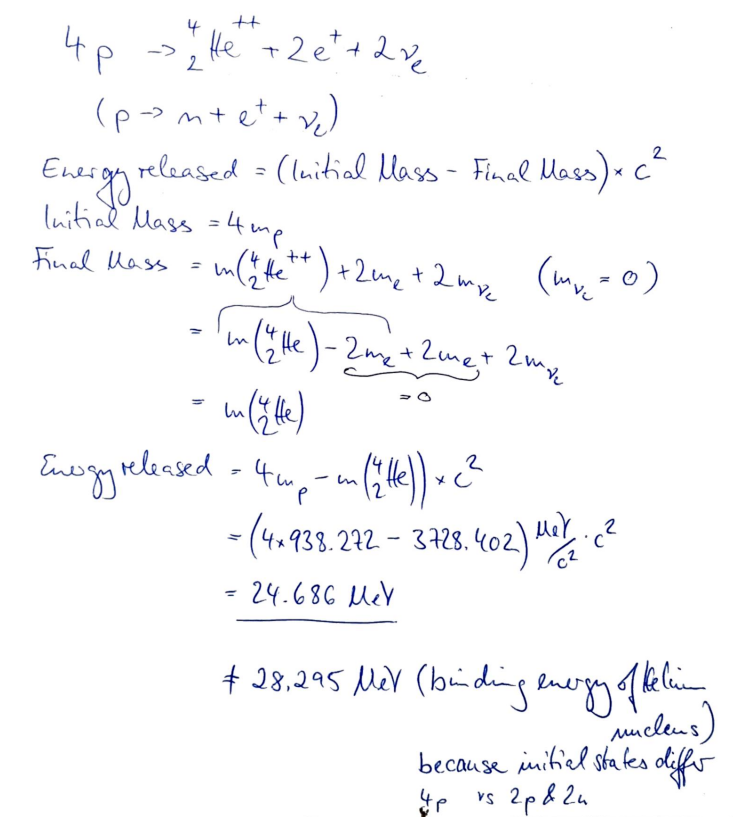 4p -> ⁴₂He⁺⁺ + 2e⁺ + 2νₑ
(p -> n + e⁺ + νₑ)
Energy released = (Initial Mass - Final Mass) × c²
Initial Mass = 4mₚ
Final Mass = m(⁴₂He⁺⁺) + 2mₑ + 2m_νₑ (m_νₑ = 0)
= m(⁴₂He) - 2mₑ + 2mₑ + 2m_νₑ
= 0
= m(⁴₂He)
Energy released = 4mₚ - m(⁴₂He)) × c²
= (4×938.272 - 3728.402) MeV/c² · c²
= 24.686 MeV
≠ 28.295 MeV (binding energy of Helium
nucleus)
because initial states differ
4p vs 2p & 2n